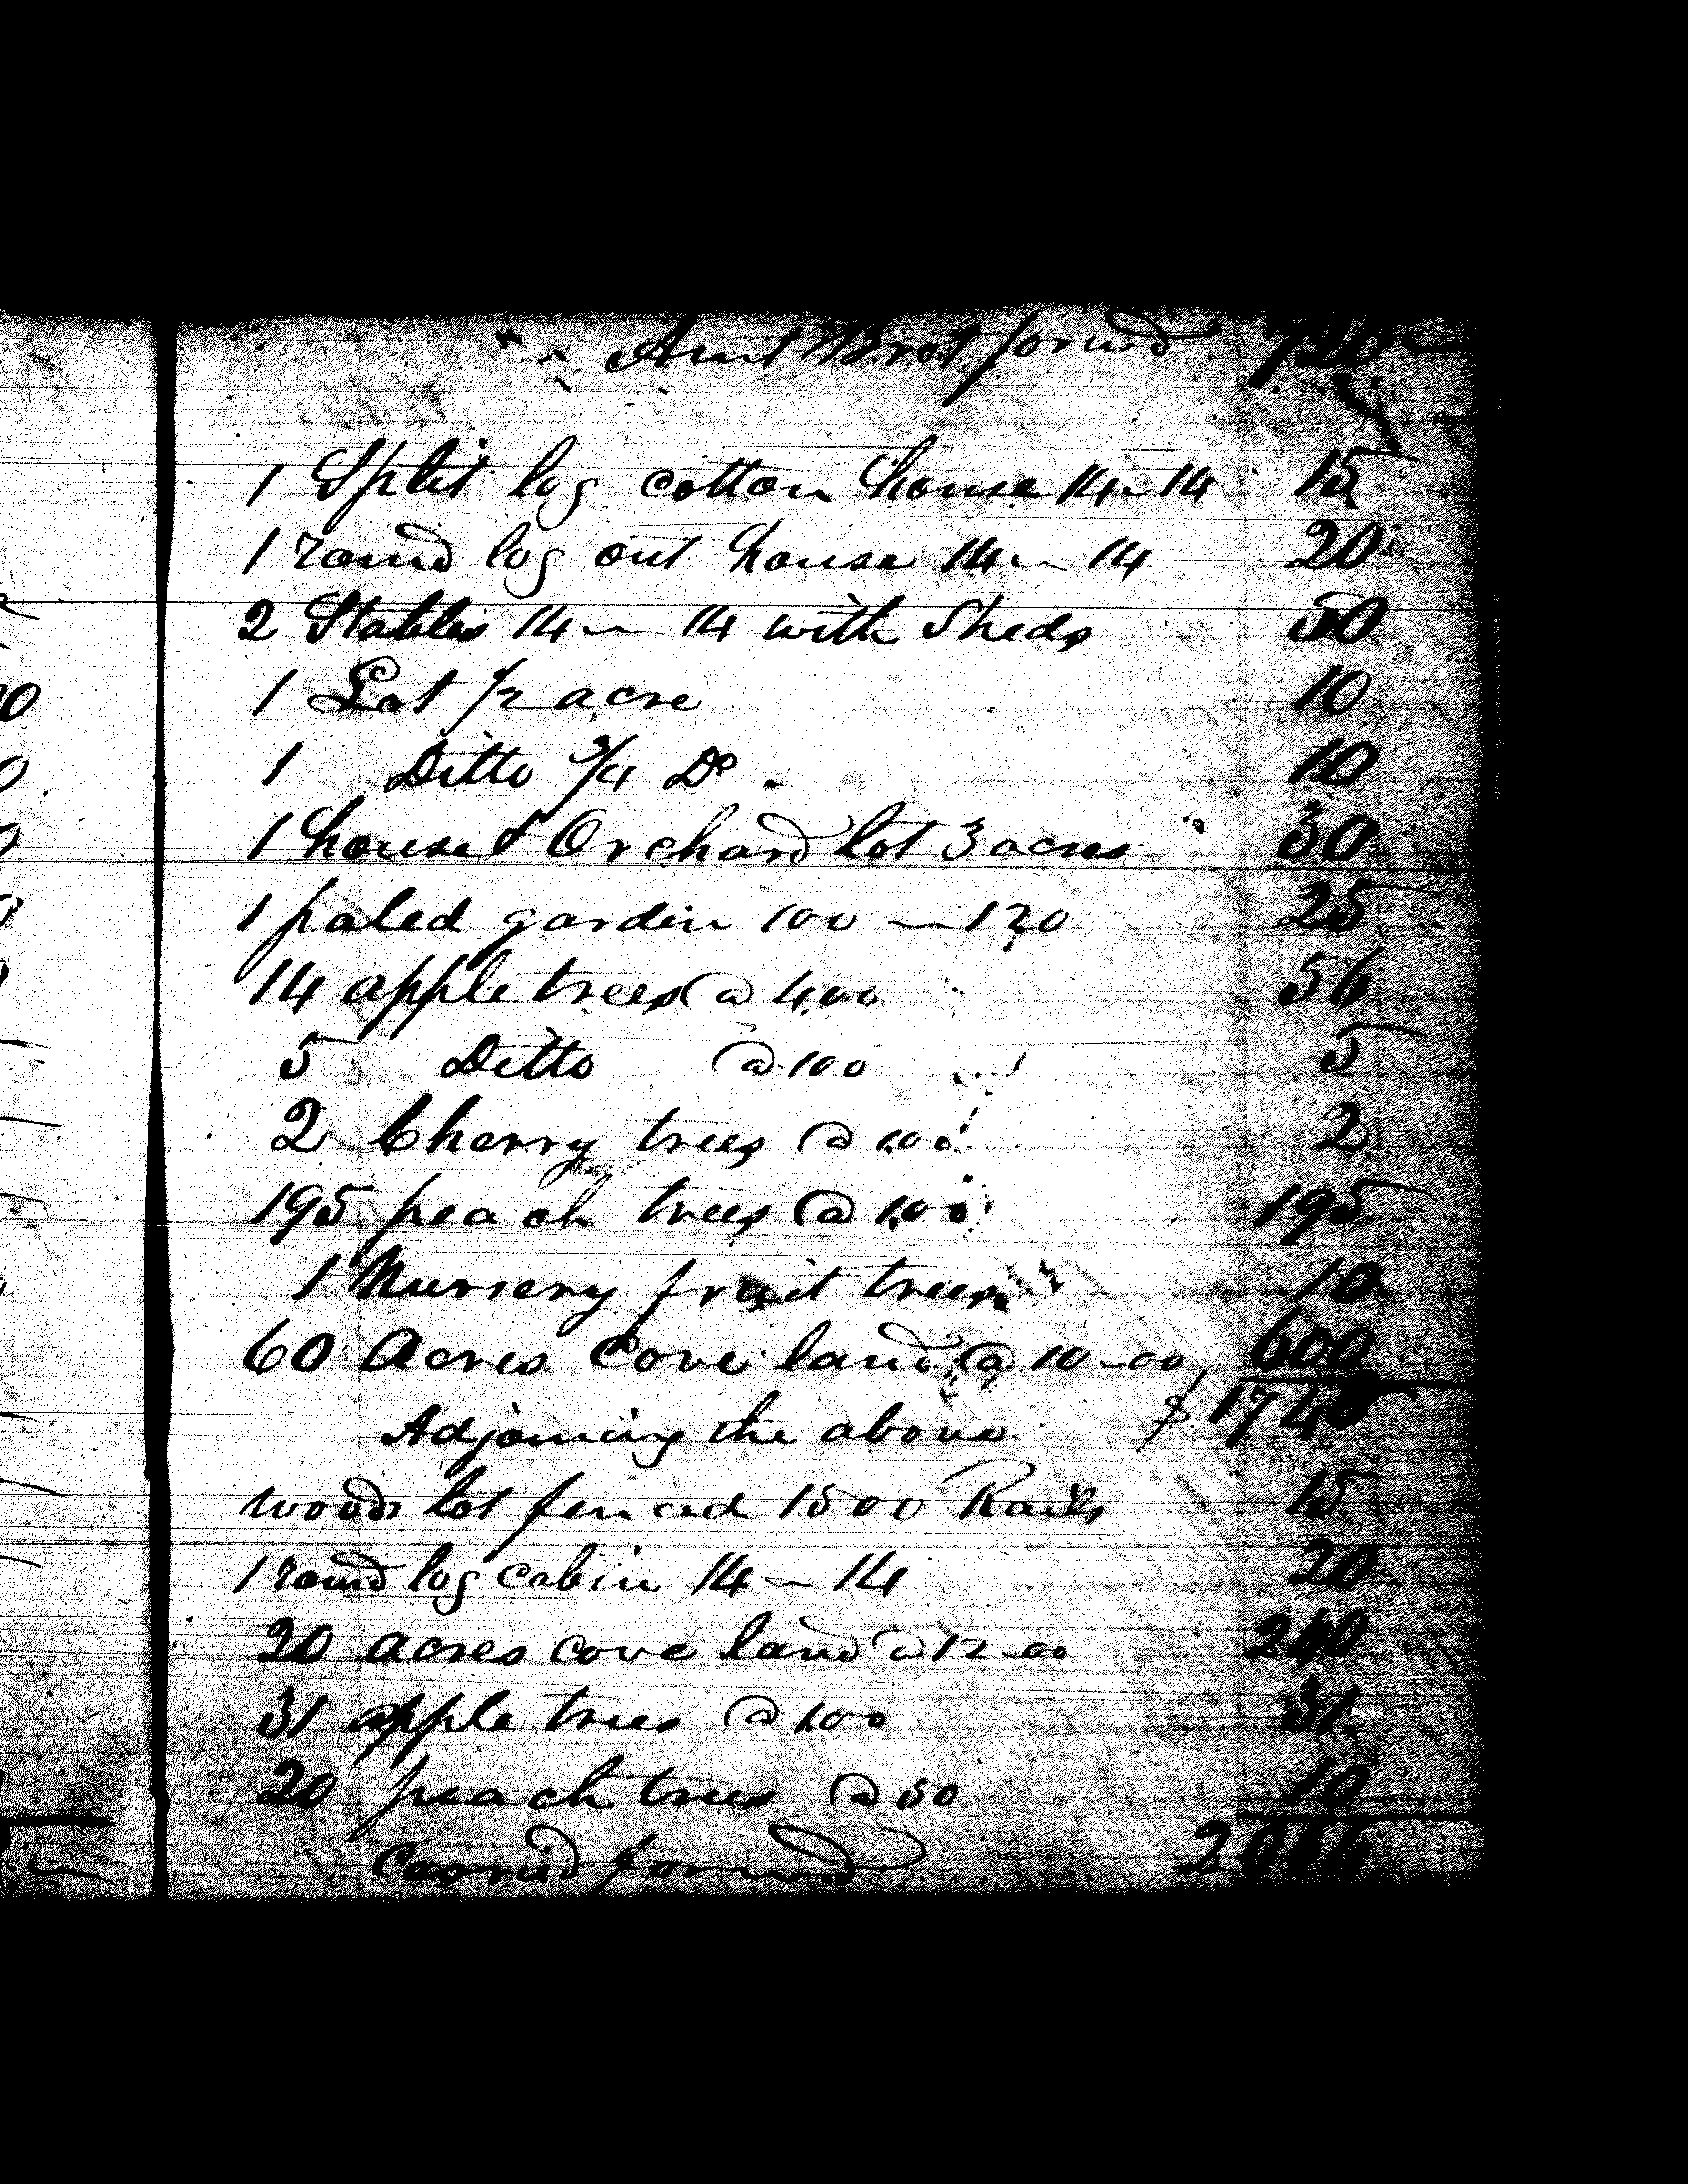 Amt Brot forwd 720
1 Split log cotton house 14 - 14 15
1 round log out house 14 - 14 20
2 Stables 14 - 14 with Sheds 50
1 Lot 1/2 acre 10
1 Ditto 3/4 Do. 10
1 house & Orchard lot 3 acres 30
1 paled garden 100 - 120 25
14 apple trees @ 4.00 56
5 Ditto @ 100 5
2 Cherry trees @ 1.00 2
195 peach trees @ 1.00 195
1 Nursery fruit trees 10
60 Acres Cove land @ 10-00 600
Adjoining the above $1748
woods lot fenced 1500 Rails 15
1 round log cabin 14 - 14 20
20 acres cove land @ 12-00 240
31 apple trees @ 1.00 31
20 peach trees @ 50 10
Carried forwd 2064